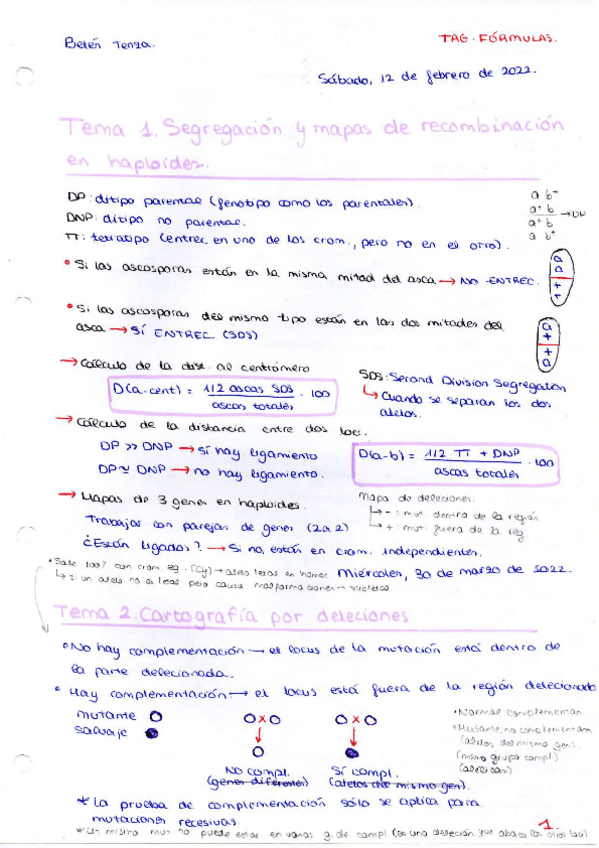 Belén Tenza.
TAG · FÓRMULAS.
Sábado, 12 de febrero de 2022.
Tema 1. Segregación y mapas de recombinación
en haploides.
DP: ditipo parental (genotipo como los parentales).
DNP: ditipo no parental.
TT: tetratipo (entrec. en uno de los crom., pero no en el otro).
a b+
a+ b
a+ b
a b+
• Si las ascosporas están en la misma mitad del asca → NO ENTREC.
a a + +
• Si las ascosporas del mismo tipo están en las dos mitades del
asca → SÍ ENTREC (SDS)
a + + a
→ Cálculo de la dist. al centrómero
D(a-cent) = 1/2 ascas SDS / ascas totales · 100
SDS: Second Division Segregation
↳ Cuando se separan los dos
alelos.
→ Cálculo de la distancia entre dos loci.
DP >> DNP → sí hay ligamiento
DP ≃ DNP → no hay ligamiento.
D(a-b) = 1/2 TT + DNP / ascas totales · 100
→ Mapas de 3 genes en haploides.
Trabajas con parejas de genes (2 a 2)
¿Están ligados? → Si no, están en crom. independientes.
Mapa de deleciones:
↳ - : mut. dentro de la región
↳ + : mut. fuera de la reg.
Miércoles, 30 de marzo de 2022.
Tema 2. Cartografía por deleciones
• No hay complementación → el locus de la mutación está dentro de
la parte delecionada.
• Hay complementación → el locus está fuera de la región delecionada
mutante
salvaje
No compl.
(genes diferentes)
Sí compl.
(alelos del mismo gen).
• Normal complementan
• Mutante no complementan
(alelos del mismo gen).
(mismo grupo compl)
* La prueba de complementación sólo se aplica para
mutaciones recesivas.
1.
* Un mismo mut. no puede estar en varios g. de compl